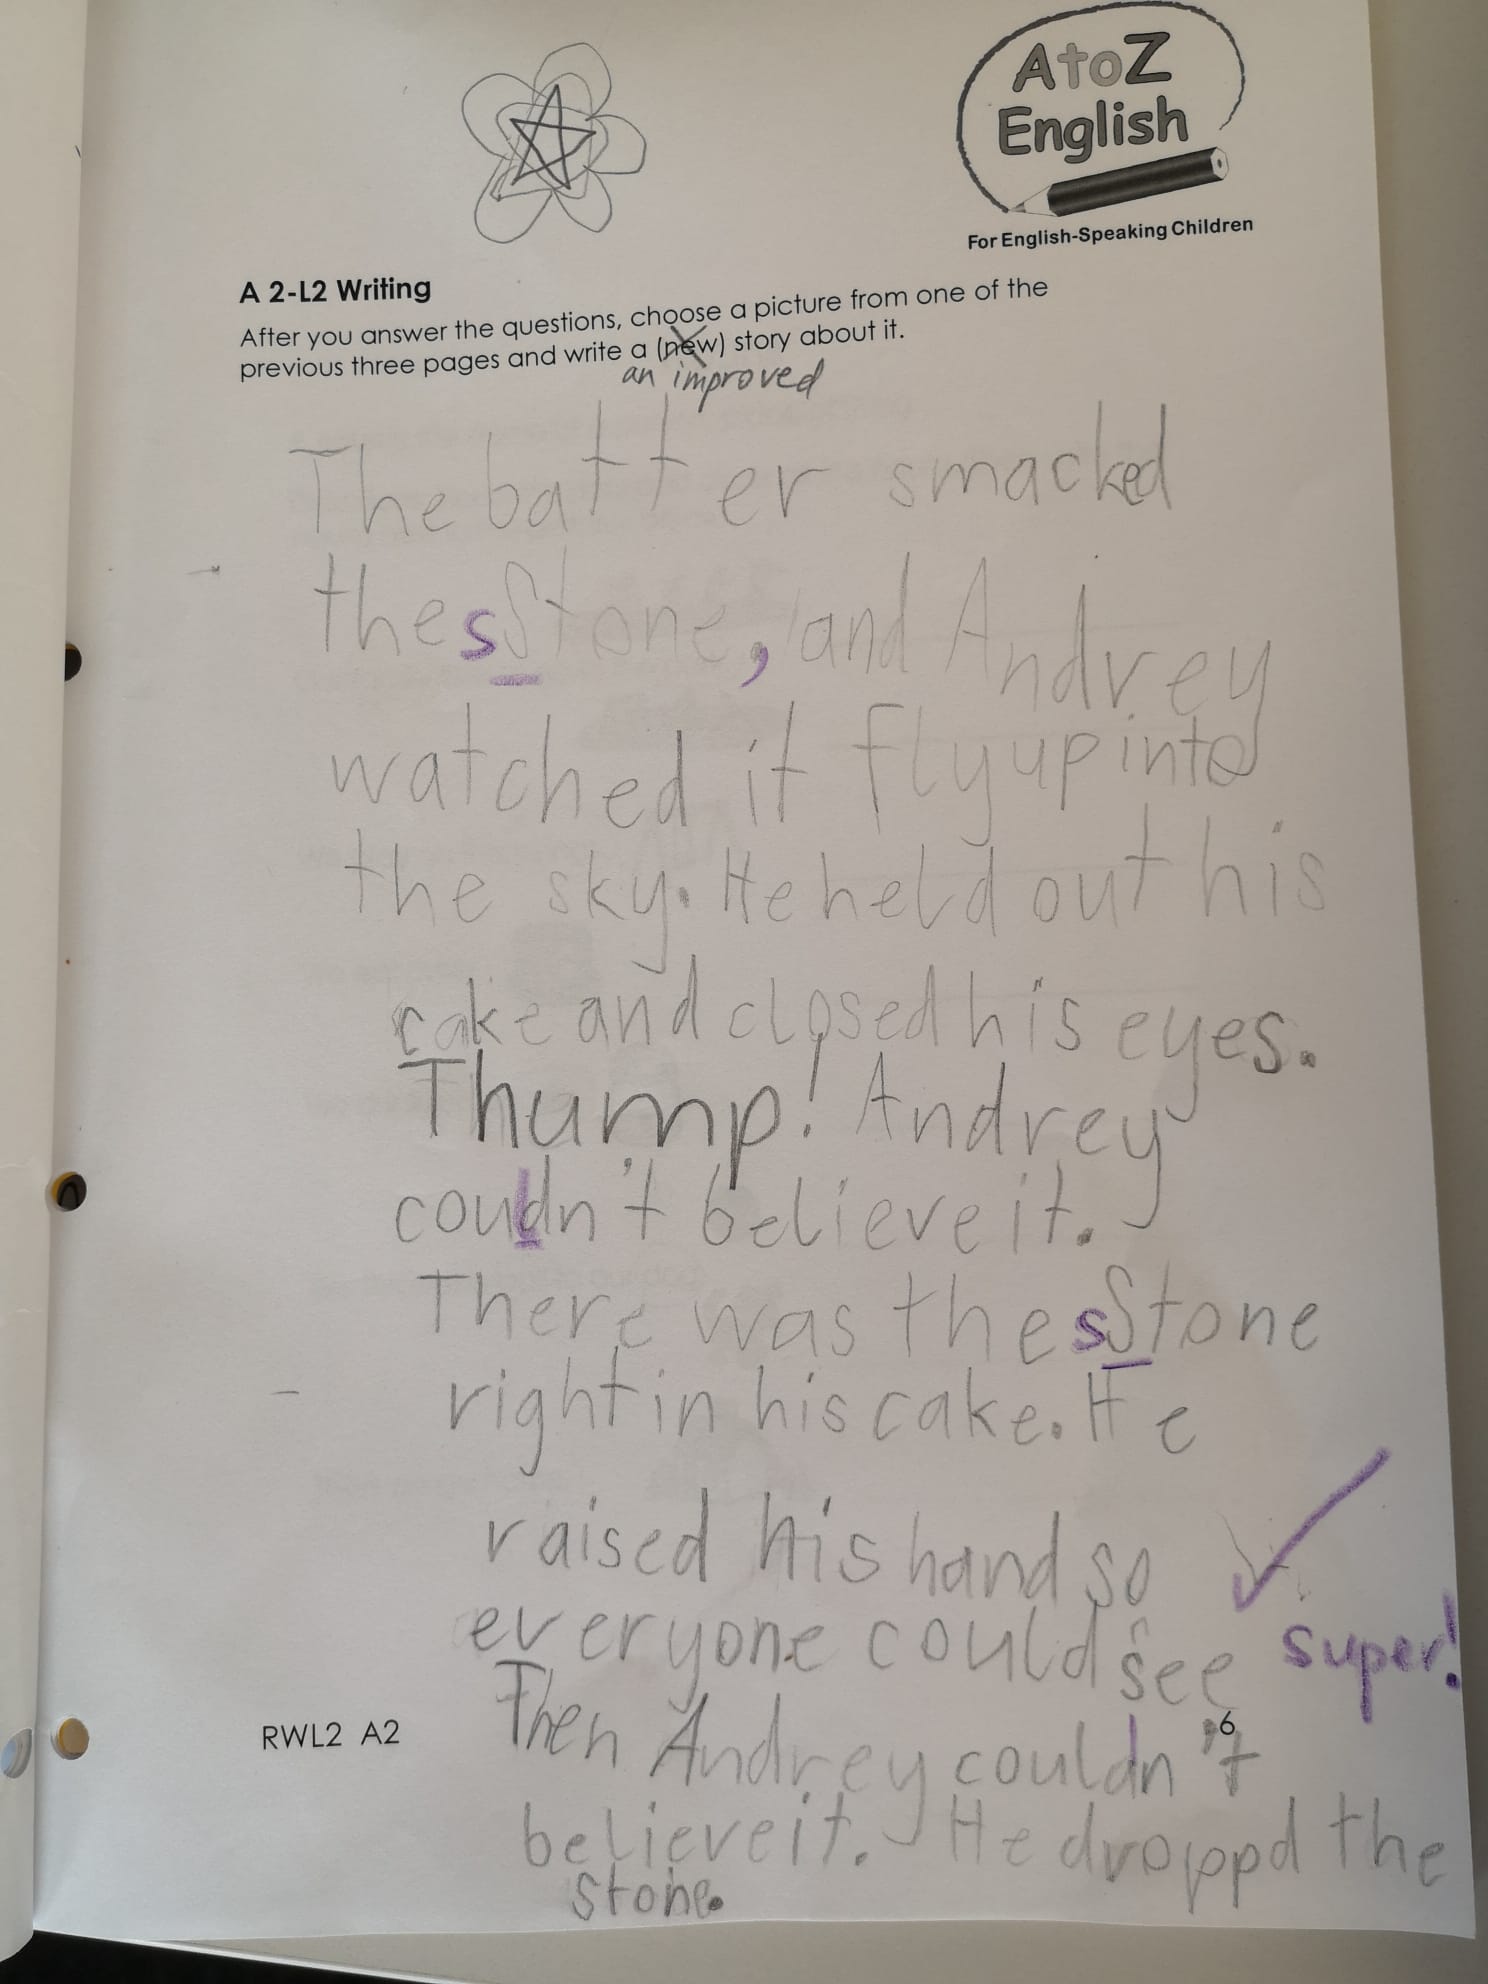 AtoZ
English
For English-Speaking Children
A 2-L2 Writing
After you answer the questions, choose a picture from one of the
previous three pages and write a (new) story about it.
an improved
The batter smacked
the sStone, and Andrey
watched it fly up into
the sky. He held out his
cake and closed his eyes.
Thump! Andrey
couldn't believe it.
There was the sStone
right in his cake. He
raised his hand so
everyone could see
super!
Then Andrey couldn't
RWL2 A2
6
believe it. He droppd the
stone.